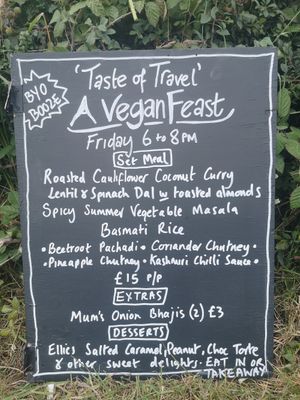 BYO
BOOZE
'Taste of Travel'
A Vegan Feast
Friday 6 to 8PM
Set Meal
Roasted Cauliflower Coconut Curry
Lentil & Spinach Dal w toasted almonds
Spicy Summer Vegetable Masala
Basmati Rice
• Beetroot Pachadi • Coriander Chutney •
• Pineapple Chutney • Kashmiri Chilli Sauce •
£15 P/P
EXTRAS
Mum's Onion Bhajis (2) £3
DESSERTS
Ellies Salted Caramel, Peanut, Choc Torte
& other sweet delights. EAT IN OR
TAKEAWAY